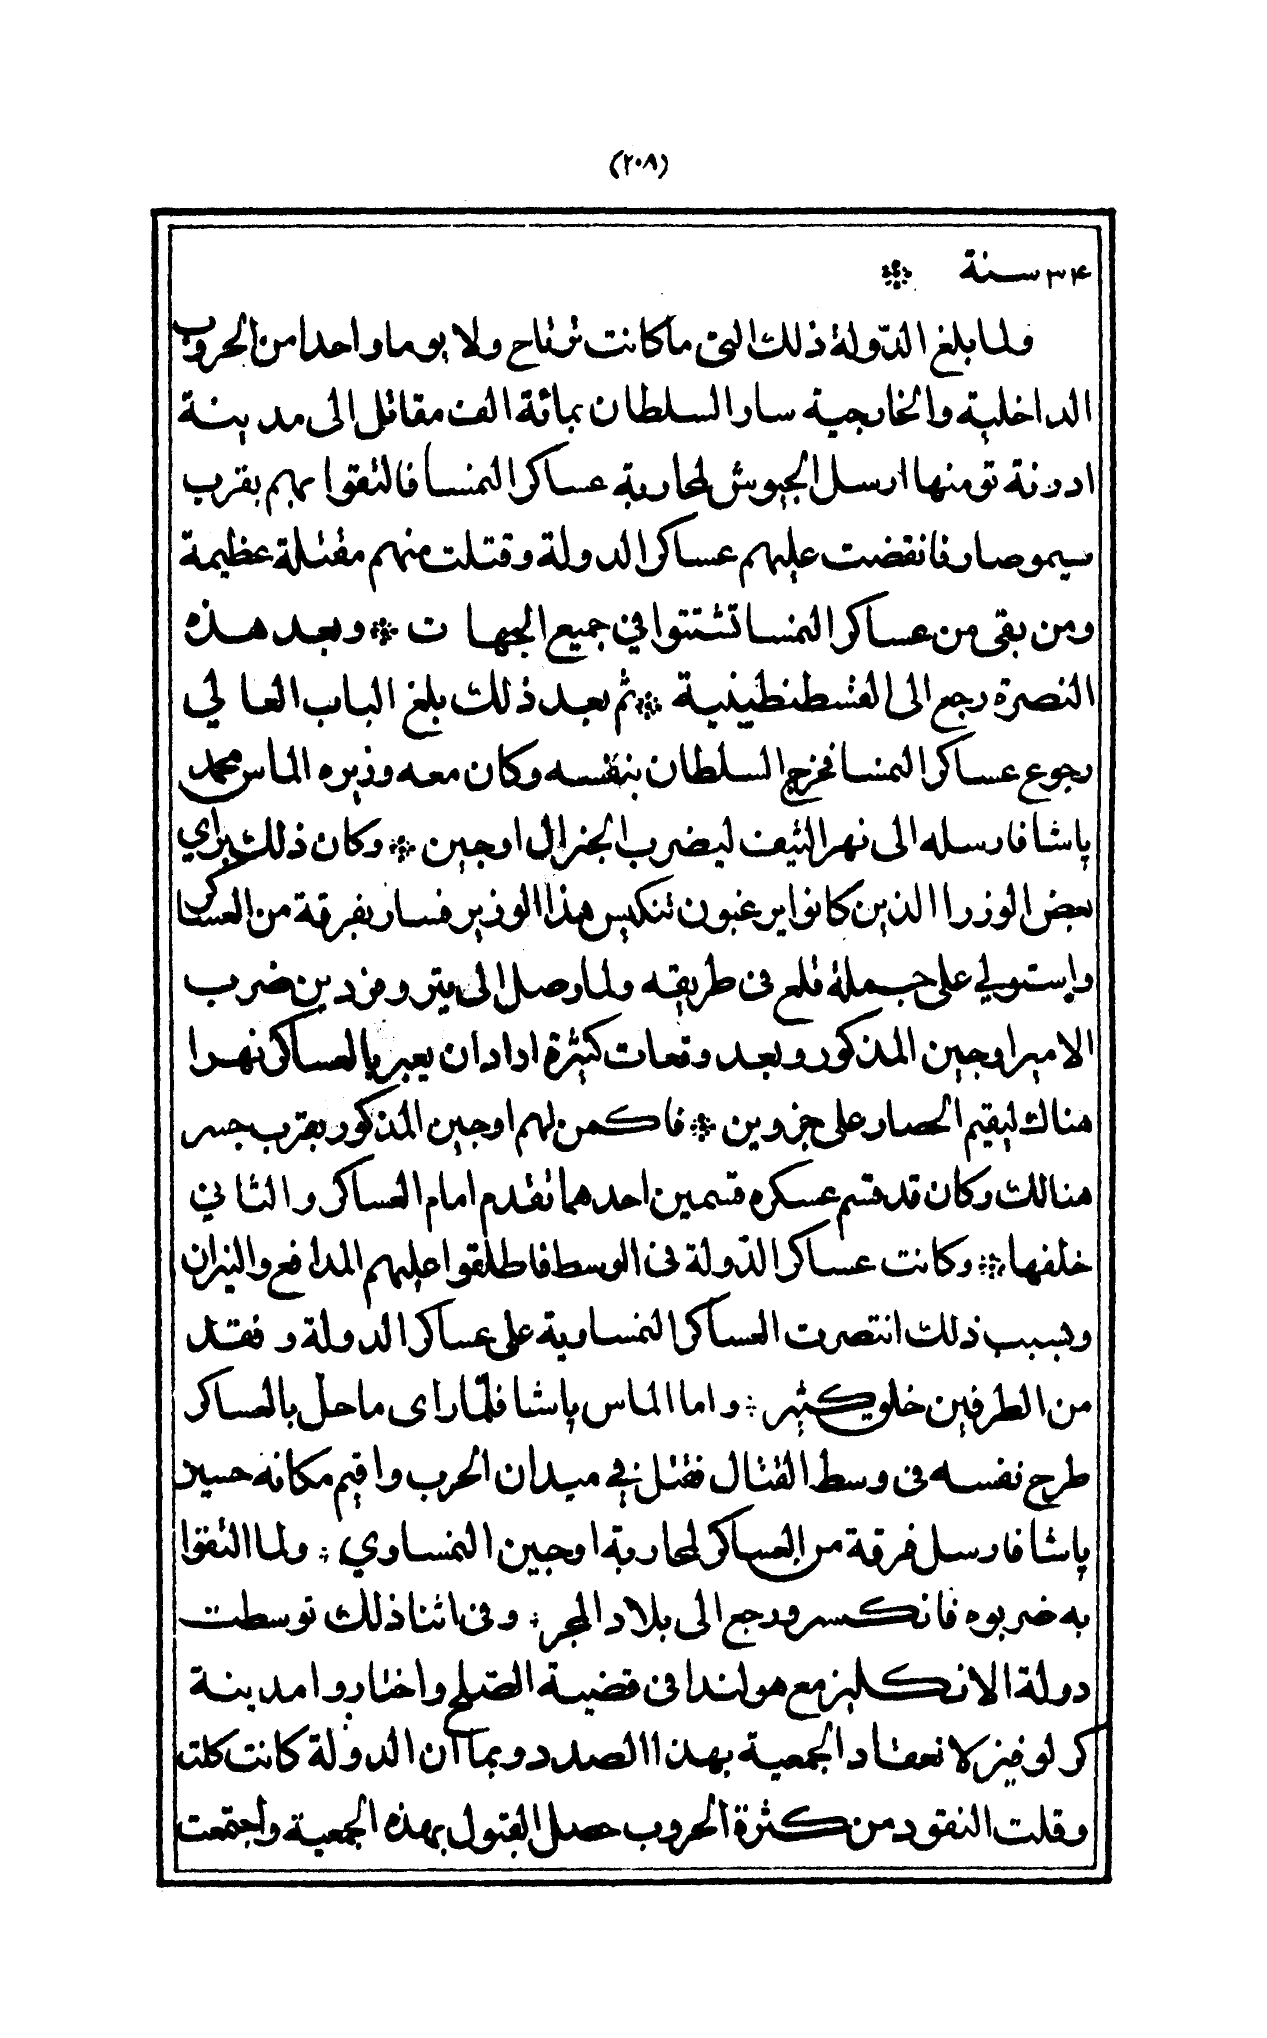 (٢٠٨)
٣٤ سنة ❊
ولما بلغ الدّولة ذلك التي ما كانت ترتاح ولا يوما واحدا من الحروب
الداخلية والخارجية سار السلطان بمائة الف مقاتل الى مدينة
ادرنة ثومنها ارسل الجيوش لمحاربة عساكر النمسا فالتقوا بهم بقرب
سيموصار فانقضت عليهم عساكر الدولة وقتلت منهم مقتلة عظيمة
ومن بقى من عساكر النمسا تشتتوا في جميع الجهات ❊ وبعد هذه
النصرة رجع الى القسطنطينية ❊ ثم بعد ذلك بلغ الباب العالي
رجوع عساكر النمسا فخرج السلطان بنفسه وكان معه وزيره الماس محمد
پاشا فارسله الى نهر التيف ليضرب الجنرال اوجين ❊ وكان ذلك براي
بعض الوزرا الذين كانوا يرغبون تنكيس هذا الوزير فسار بفرقة من العساكر
وإستولي على جملة قلع فى طريقه ولما وصل الى يتروفزدين ضرب
الامير اوجين المذكور وبعد وقعات كثيرة اراد ان يعبر بالعساكر نهرا
هناك ليقيم الحصار على جزوين ❊ فاكمن لهم اوجين المذكور بقرب جسر
هنالك وكان قد قسم عسكره قسمين احدهما تقدم امام العساكر والثاني
خلفها ❊ وكانت عساكر الدّولة فى الوسط فاطلقوا عليهم المدافع والنيران
وبسبب ذلك انتصرت العساكر النمساوية على عساكر الدولة وفقد
من الطرفين خلق كثير ÷ واما الماس پاشا فلمّا راى ما حل بالعساكر
طرح نفسه فى وسط القتال فقتل في ميدان الحرب واقيم مكانه حسين
پاشا فارسل فرقة من العساكر لمحاربة اوجين النمساوي ÷ ولما التقوا
به ضربوه فانكسر ورجع الى بلاد المجر ÷ وفى اثنا ذلك توسطت
دولة الانكليز مع هولندا فى قضية الصّلح واختاروا مدينة
كرلوفيز لانعقاد الجمعية بهذا الصدد وبما أن الدولة كانت كلت
وقلت النقود من كثرة الحروب حصل القبول بهذه الجمعية وأجتمعت